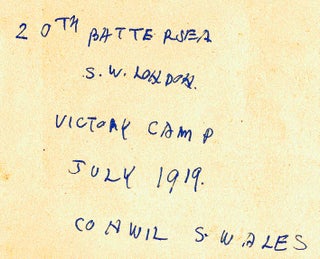 20TH BATTERSEA
S.W. LONDON.
VICTORY CAMP
JULY 1919.
CONWIL S. WALES